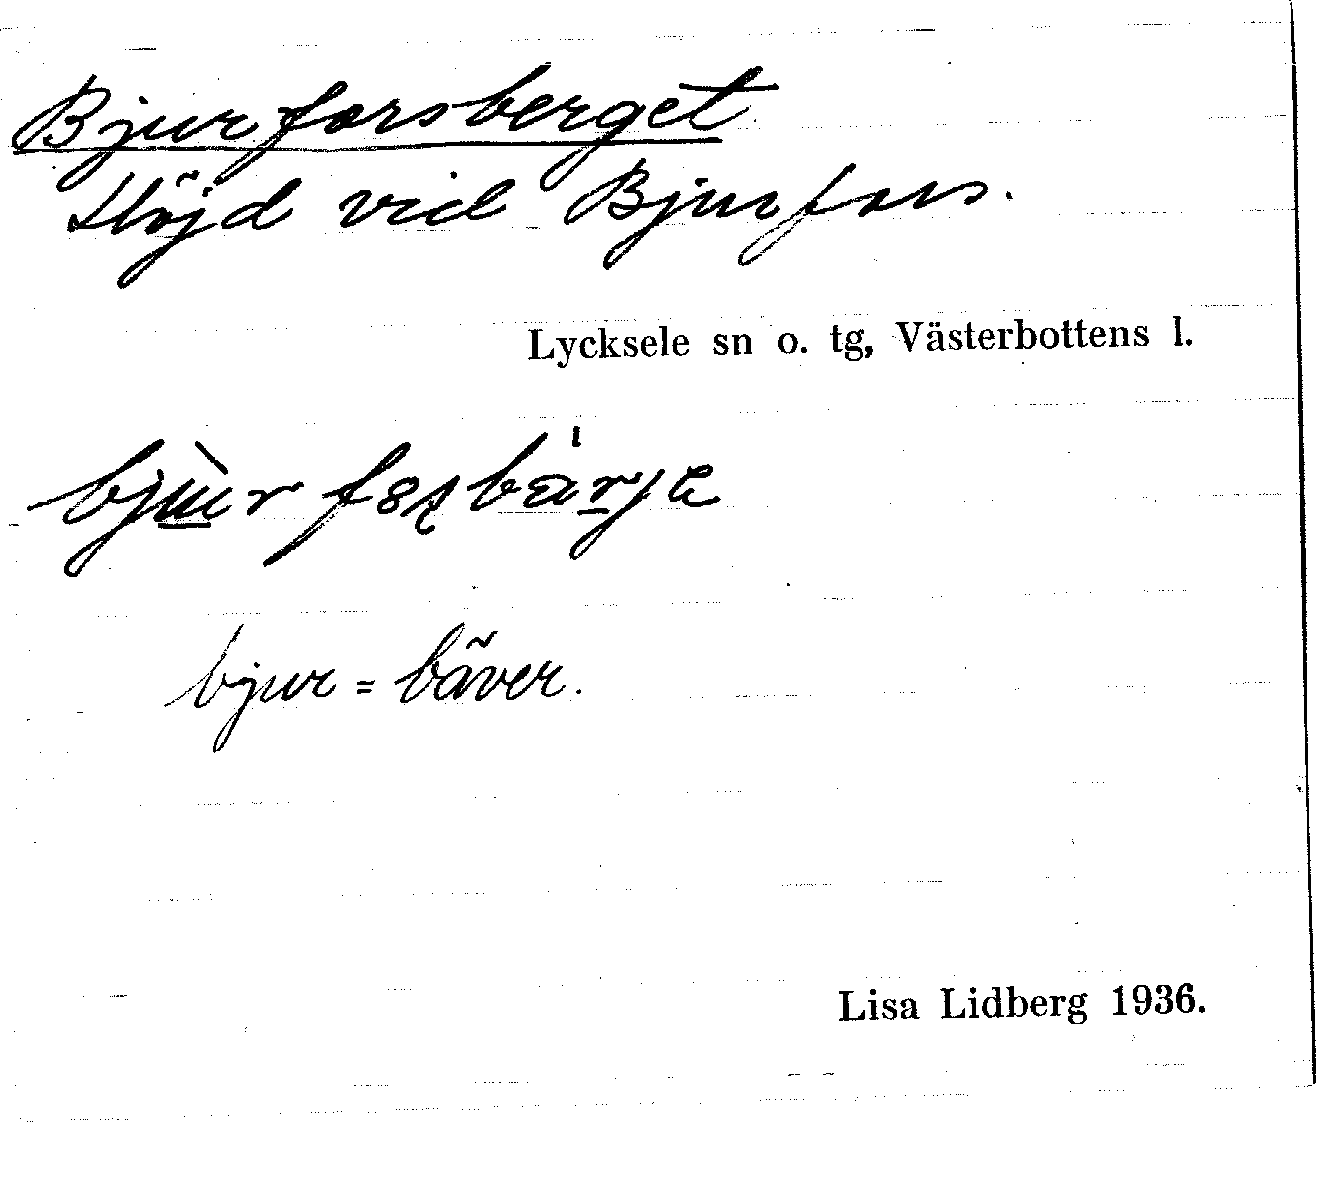 Bjurforsberget
Höjd vid Bjurfors.
Lycksele sn o. tg, Västerbottens l.
bjur = bäver.
Lisa Lidberg 1936.